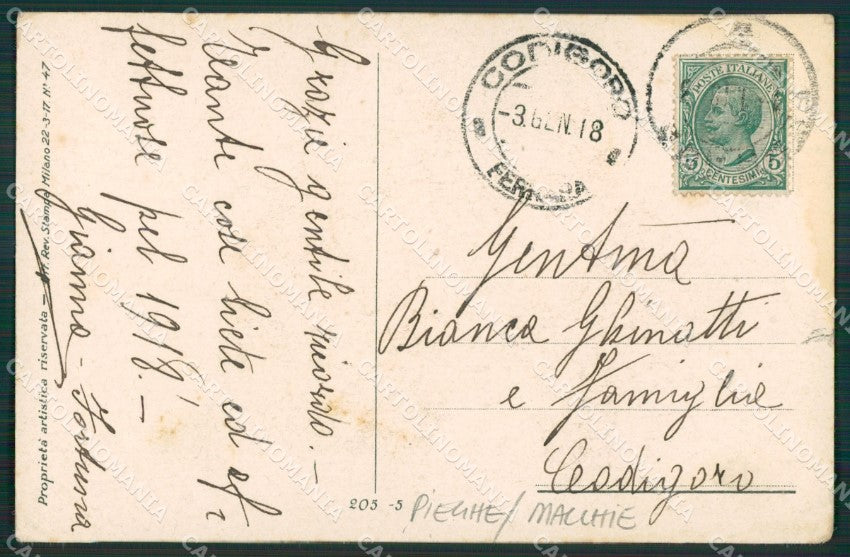 Grazie gentile ricordo. —
Tante cose liete ed af-
fettuose pel 1918. —
Gianna - Fortuna
Proprietà artistica riservata — Rev. Stampa Milano 22-3-17. N° 47
CODIGORO
-3.GEN.18
FERRARA
POSTE ITALIANE
5 CENTESIMI 5
Gent.ma
Bianca Ghinatti
e Famiglia
Codigoro
205 -5
PIEGHE/ MACCHIE
CARTOLINOMANIA